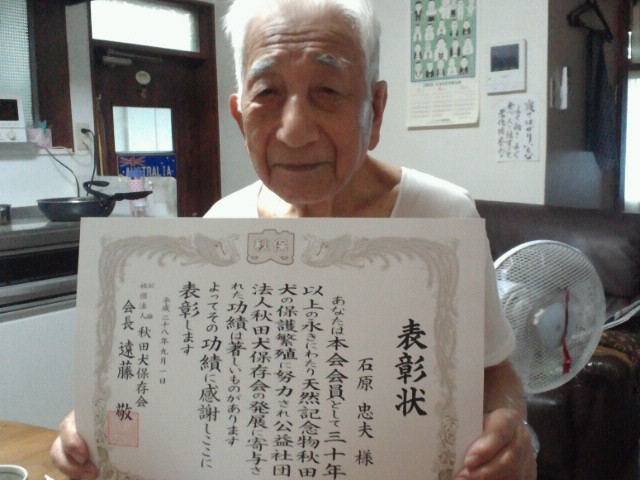 表彰状
石原忠夫様
あなたは本会会員として三十年
以上の永きにわたり天然記念物秋田
犬の保護繁殖に努力され公益社団
法人秋田犬保存会の発展に寄与さ
れた功績は著しいものがあります
よってその功績に感謝しここに
表彰します
平成二十八年九月一日
公益社団法人 秋田犬保存会
会長 遠藤 敬
AUSTRALIA